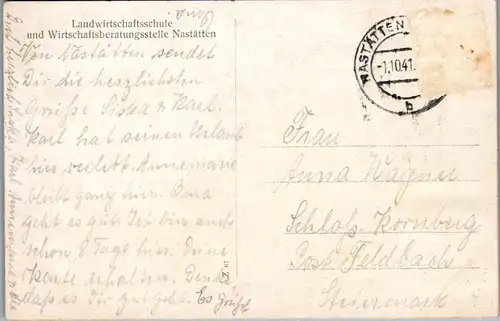 Landwirtschaftsschule
und Wirtschaftsberatungsstelle Nastätten
Von Nastätten sendet
Dir die herzlichsten
Grüße Siska & Karl.
Karl hat seinen Urlaub
hier verlebt. Annemarie
bleibt ganz hier. Oma
geht es gut. Ich bin auch
schon 8 Tage hier. Deine
Karte erhalten. Denke
daß es Dir gut geht. Es grüßt
Oma.
NASTÄTTEN
-1.10.41.
b
Frau
Anna Wagner
Schloß Kornberg
Post Feldbach
Steiermark